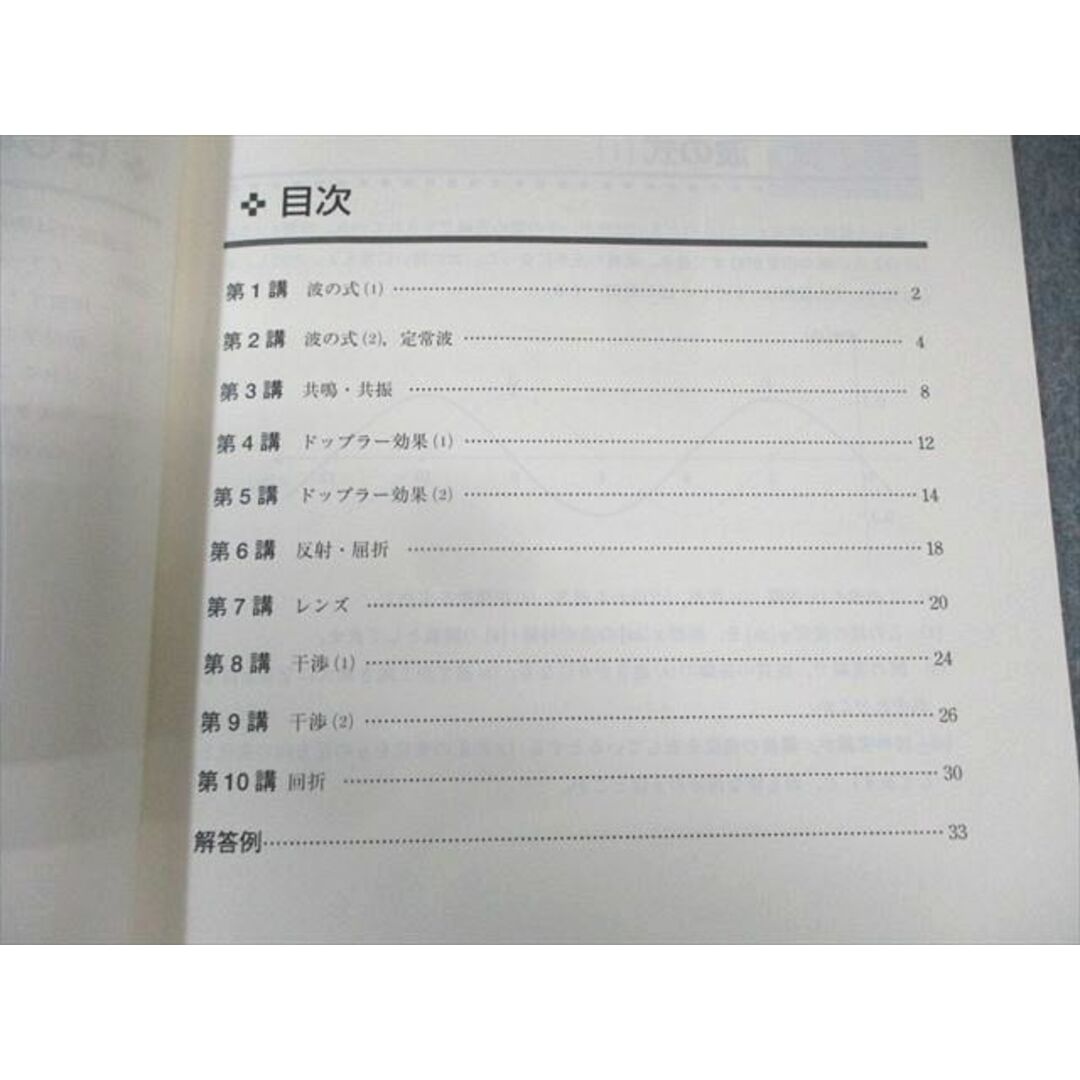 目次
第1講 波の式(1) 2
第2講 波の式(2), 定常波 4
第3講 共鳴・共振 8
第4講 ドップラー効果(1) 12
第5講 ドップラー効果(2) 14
第6講 反射・屈折 18
第7講 レンズ 20
第8講 干渉(1) 24
第9講 干渉(2) 26
第10講 回折 30
解答例 33